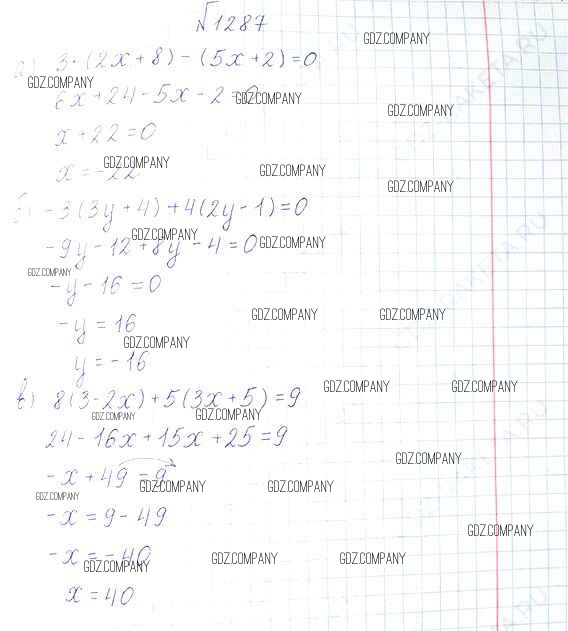 √1287
GDZ.COMPANY
а) 3·(2x+8)-(5x+2)=0
GDZ.COMPANY
6x+24-5x-2=0
GDZ.COMPANY
GDZ.COMPANY
x+22=0
GDZ.COMPANY
x=-22
GDZ.COMPANY
GDZ.COMPANY
б) -3(3y+4)+4(2y-1)=0
GDZ.COMPANY
-9y-12+8y-4=0
GDZ.COMPANY
GDZ.COMPANY
-y-16=0
GDZ.COMPANY
GDZ.COMPANY
-y=16
GDZ.COMPANY
y=-16
GDZ.COMPANY
GDZ.COMPANY
в) 8(3-2x)+5(3x+5)=9
GDZ.COMPANY
GDZ.COMPANY
24-16x+15x+25=9
GDZ.COMPANY
-x+49=9
GDZ.COMPANY
GDZ.COMPANY
GDZ.COMPANY
-x=9-49
GDZ.COMPANY
-x=-40
GDZ.COMPANY
GDZ.COMPANY
GDZ.COMPANY
x=40